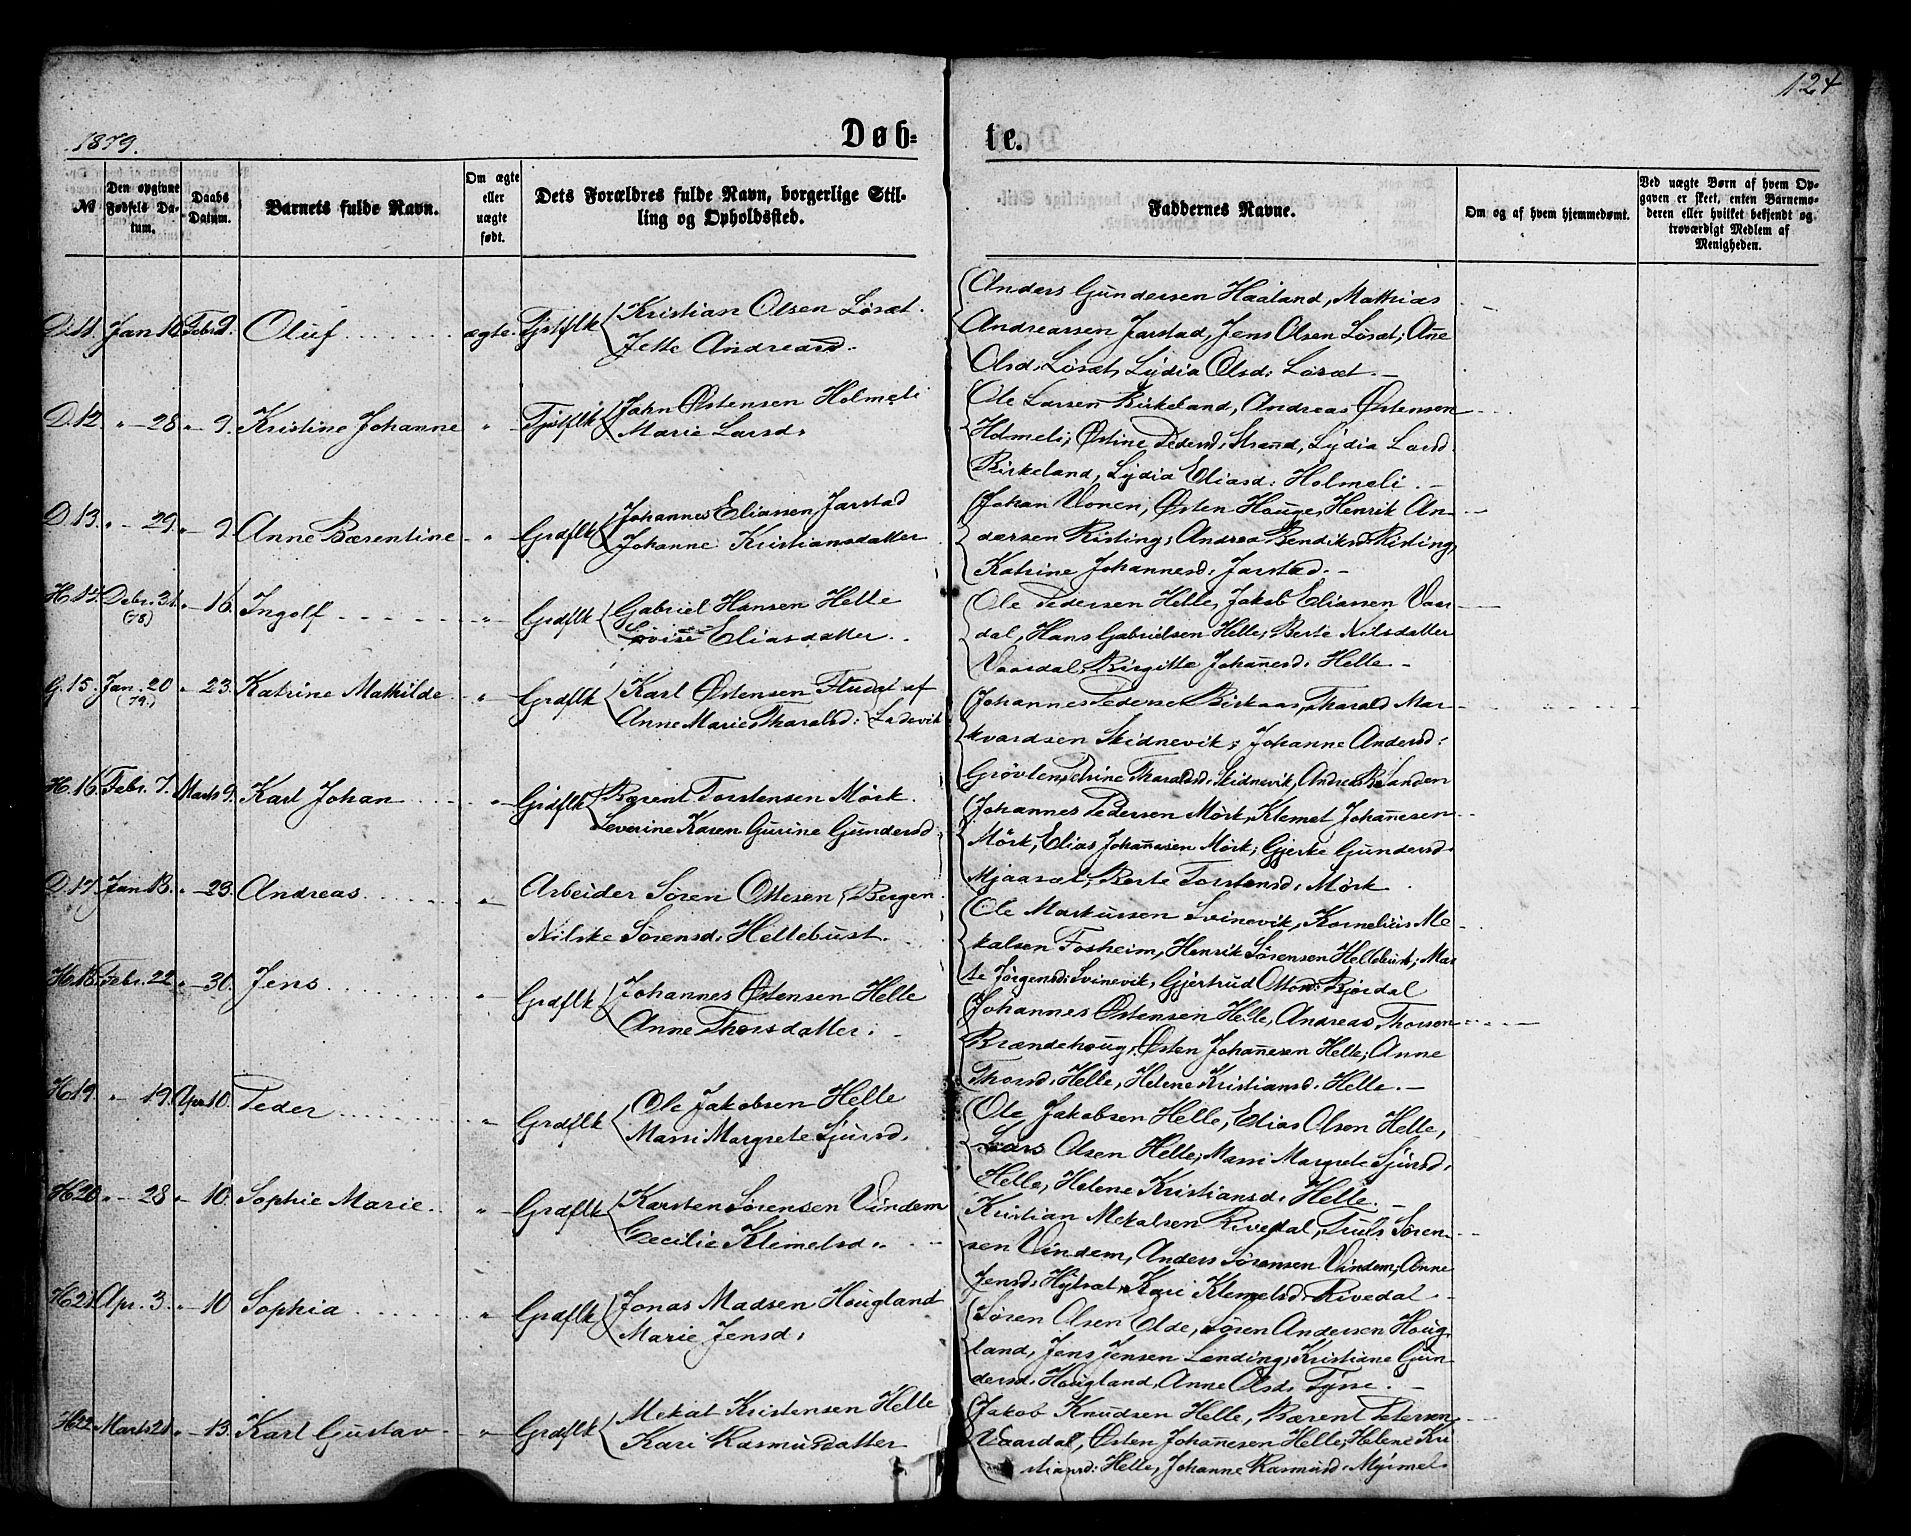 124
1879.
Døb-
te.
№
Den opgivne Fødsels Da-
tum.
Daabs
Datum.
Barnets fulde Navn.
Om ægte
eller
uægte
født.
Dets Forældres fulde Navn, borgerlige Stil-
ling og Opholdssted.
Faddernes Navne.
Om og af hvem hjemmedøbt.
Ved uægte Børn af hvem Op-
gaven er skeet, enten Barnemo-
deren eller hvilket bekjendt og
troværdigt Medlem af
Menigheden.
D. 11. Jan 16 Febr. 9. Oluf ægte. Tjstflk Kristian Olsen Løsæt.
Jette Andreasd.
Anders Gundersen Haaland, Mathias
Andreassen Jarstad, Jens Olsen Løsæt; Ane
Olsd. Løsæt, Lydia Olsd: Løsæt.
D. 12. " - 28 " - 9. Kristine Johanne " Tjstflk John Østensen Holmeli
Marie Larsd:
Ole Larsen Birkeland, Andreas Østensen
Holmeli; Østine Pedersd: Strand, Lydia Larsd.
Birkeland, Lydia Eliasd: Holmeli.
D. 13. " - 29. " - 9 Anne Bærentine " Grdflk Johannes Eliassen Jarstad
Johanne Kristiansdatter
Johan Vonen, Østen Houge, Henrik An-
dersen Risting; Andrea Bendiksd: Risting,
Katrine Johannesd: Jarstad.
H. 14. Debr. 31. (78) " - 16. Ingolf " Grdflk Gabriel Hansen Helle
Lovise Eliasdatter.
Ole Pedersen Helle, Jakob Eliassen Vaar-
dal, Hans Gabrielsen Helle; Berte Nilsdatter
Vaardal, Birgitte Johanesd: Helle
G. 15. Jan. 20 (79.) " - 23. Katrine Mathilde " Grdflk Karl Østensen Fludal af
Anne Marie Tharalsd: Ladevik
Johannes Pedersen Birkaas, Tharald Mar-
kvardsen Skidnevik; Johanne Andersd:
Grøvlen, Trine Tharaldsd: Skidnevik, Andrea B. Sanden
H. 16. Febr. 7. Marts 9. Karl Johan " Grdflk Bærent Torstensen Mørk.
Severine Karen Gurine Gundersd.
Johannes Pedersen Mørk, Klemet Johanesen
Mørk, Elias Johanesen Mørk; Gjerke Gundersd.
Mjaasæt, Berte Torstensd: Mørk.
D. 17. Jan 13. " - 23. Andreas " Arbeider Søren Ottesen, Bergen.
Nilske Sørensd: Hellebust.
Ole Markussen Svinevik, Kornelius Me-
kalsen Fosheim, Henrik Sørensen Hellebust; Mar-
te Jørgensd: Svinevik, Gjertrud Ottesd: Bjørdal
H. 18. Febr. 22 " - 30. Jens " Grdflk Johannes Østensen Helle
Anne Thorsdatter.
Johannes Østensen Helle, Andreas Thorsen
Brændehoug, Østen Johanesen Helle; Anne
Thorsd: Helle, Helene Kristiansd: Helle.
H 19. " 19. Apr. 10. Peder " Grdflk Ole Jakobsen Helle
Marri Margrete Sjursd.
Ole Jakobsen Helle, Elias Olsen Helle,
Lars Olsen Helle; Marri Margrete Sjursd:
Helle, Helene Kristiansd: Helle.
H 20 " - 28 " 10. Sophie Marie " Grdflk Karsten Sørensen Vindem
Cecilie Klemetsd.
Kristian Mekalsen Rivedal, Truls Søren-
sen Vindem, Anders Sørensen Vindem; Anne
Jensd: Hylsæt, Kari Klemetsd: Rivedal
H 21. Apr. 3. " - 10 Sophia " Grdflk Jonas Madsen Hougland
Marie Jensd:
Søren Olsen Olde, Søren Andersen Houg-
land, Jens Jensen Lending; Kristiane Gun-
dersd: Hougland, Anne Olsd: Tysse.
H 22 Marts 21. " - 13. Karl Gustav " Grdflk Mekal Kristensen Helle
Kari Rasmusdatter
Jakob Knudsen Helle, Bærent Petersen
Vaardal, Østen Johanesen Helle; Helene Kri-
stiansd: Helle, Johanne Rasmusd: Myrmel.